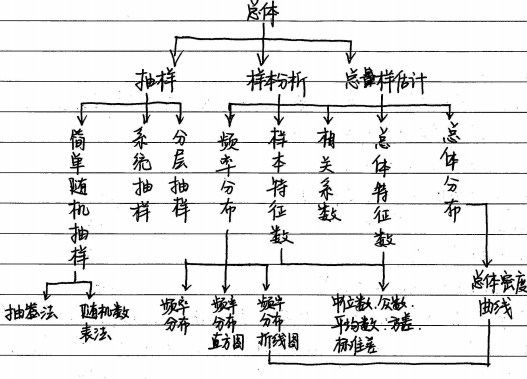 总体
抽样 样本分析 总量样估计
简单随机抽样 系统抽样 分层抽样 频率分布 样本特征数 相关系数 总体特征数 总体分布
抽签法 随机数表法
频率分布 频率分布直方图 频率分布折线图 中位数、众数、平均数、方差、标准差 总体密度曲线